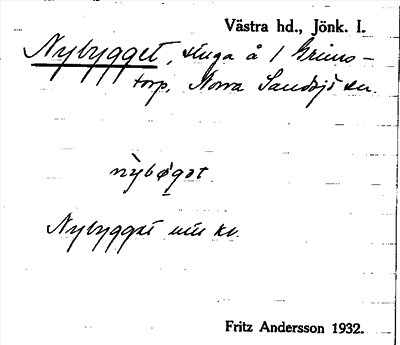 Västra hd., Jönk. l.
Nybygget, stuga å 1 Grims-
torp, Norra Sandsjö sn.
nybøgət
Nybygget
Fritz Andersson 1932.